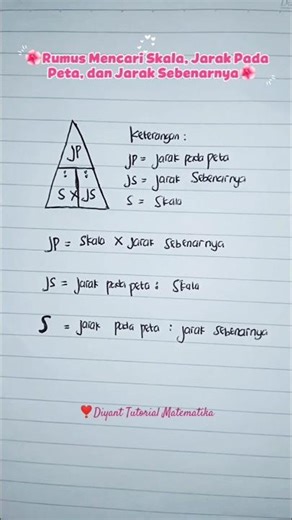 🌸Rumus Mencari Skala, Jarak Pada
Peta, dan Jarak Sebenarnya🌸
JP
: :
S X JS
Keterangan :
JP = Jarak pada peta
JS = Jarak Sebenarnya
S = Skala
JP = Skala X Jarak Sebenarnya
JS = Jarak pada peta : Skala
S = Jarak pada peta : Jarak Sebenarnya
❣️Diyant Tutorial Matematika